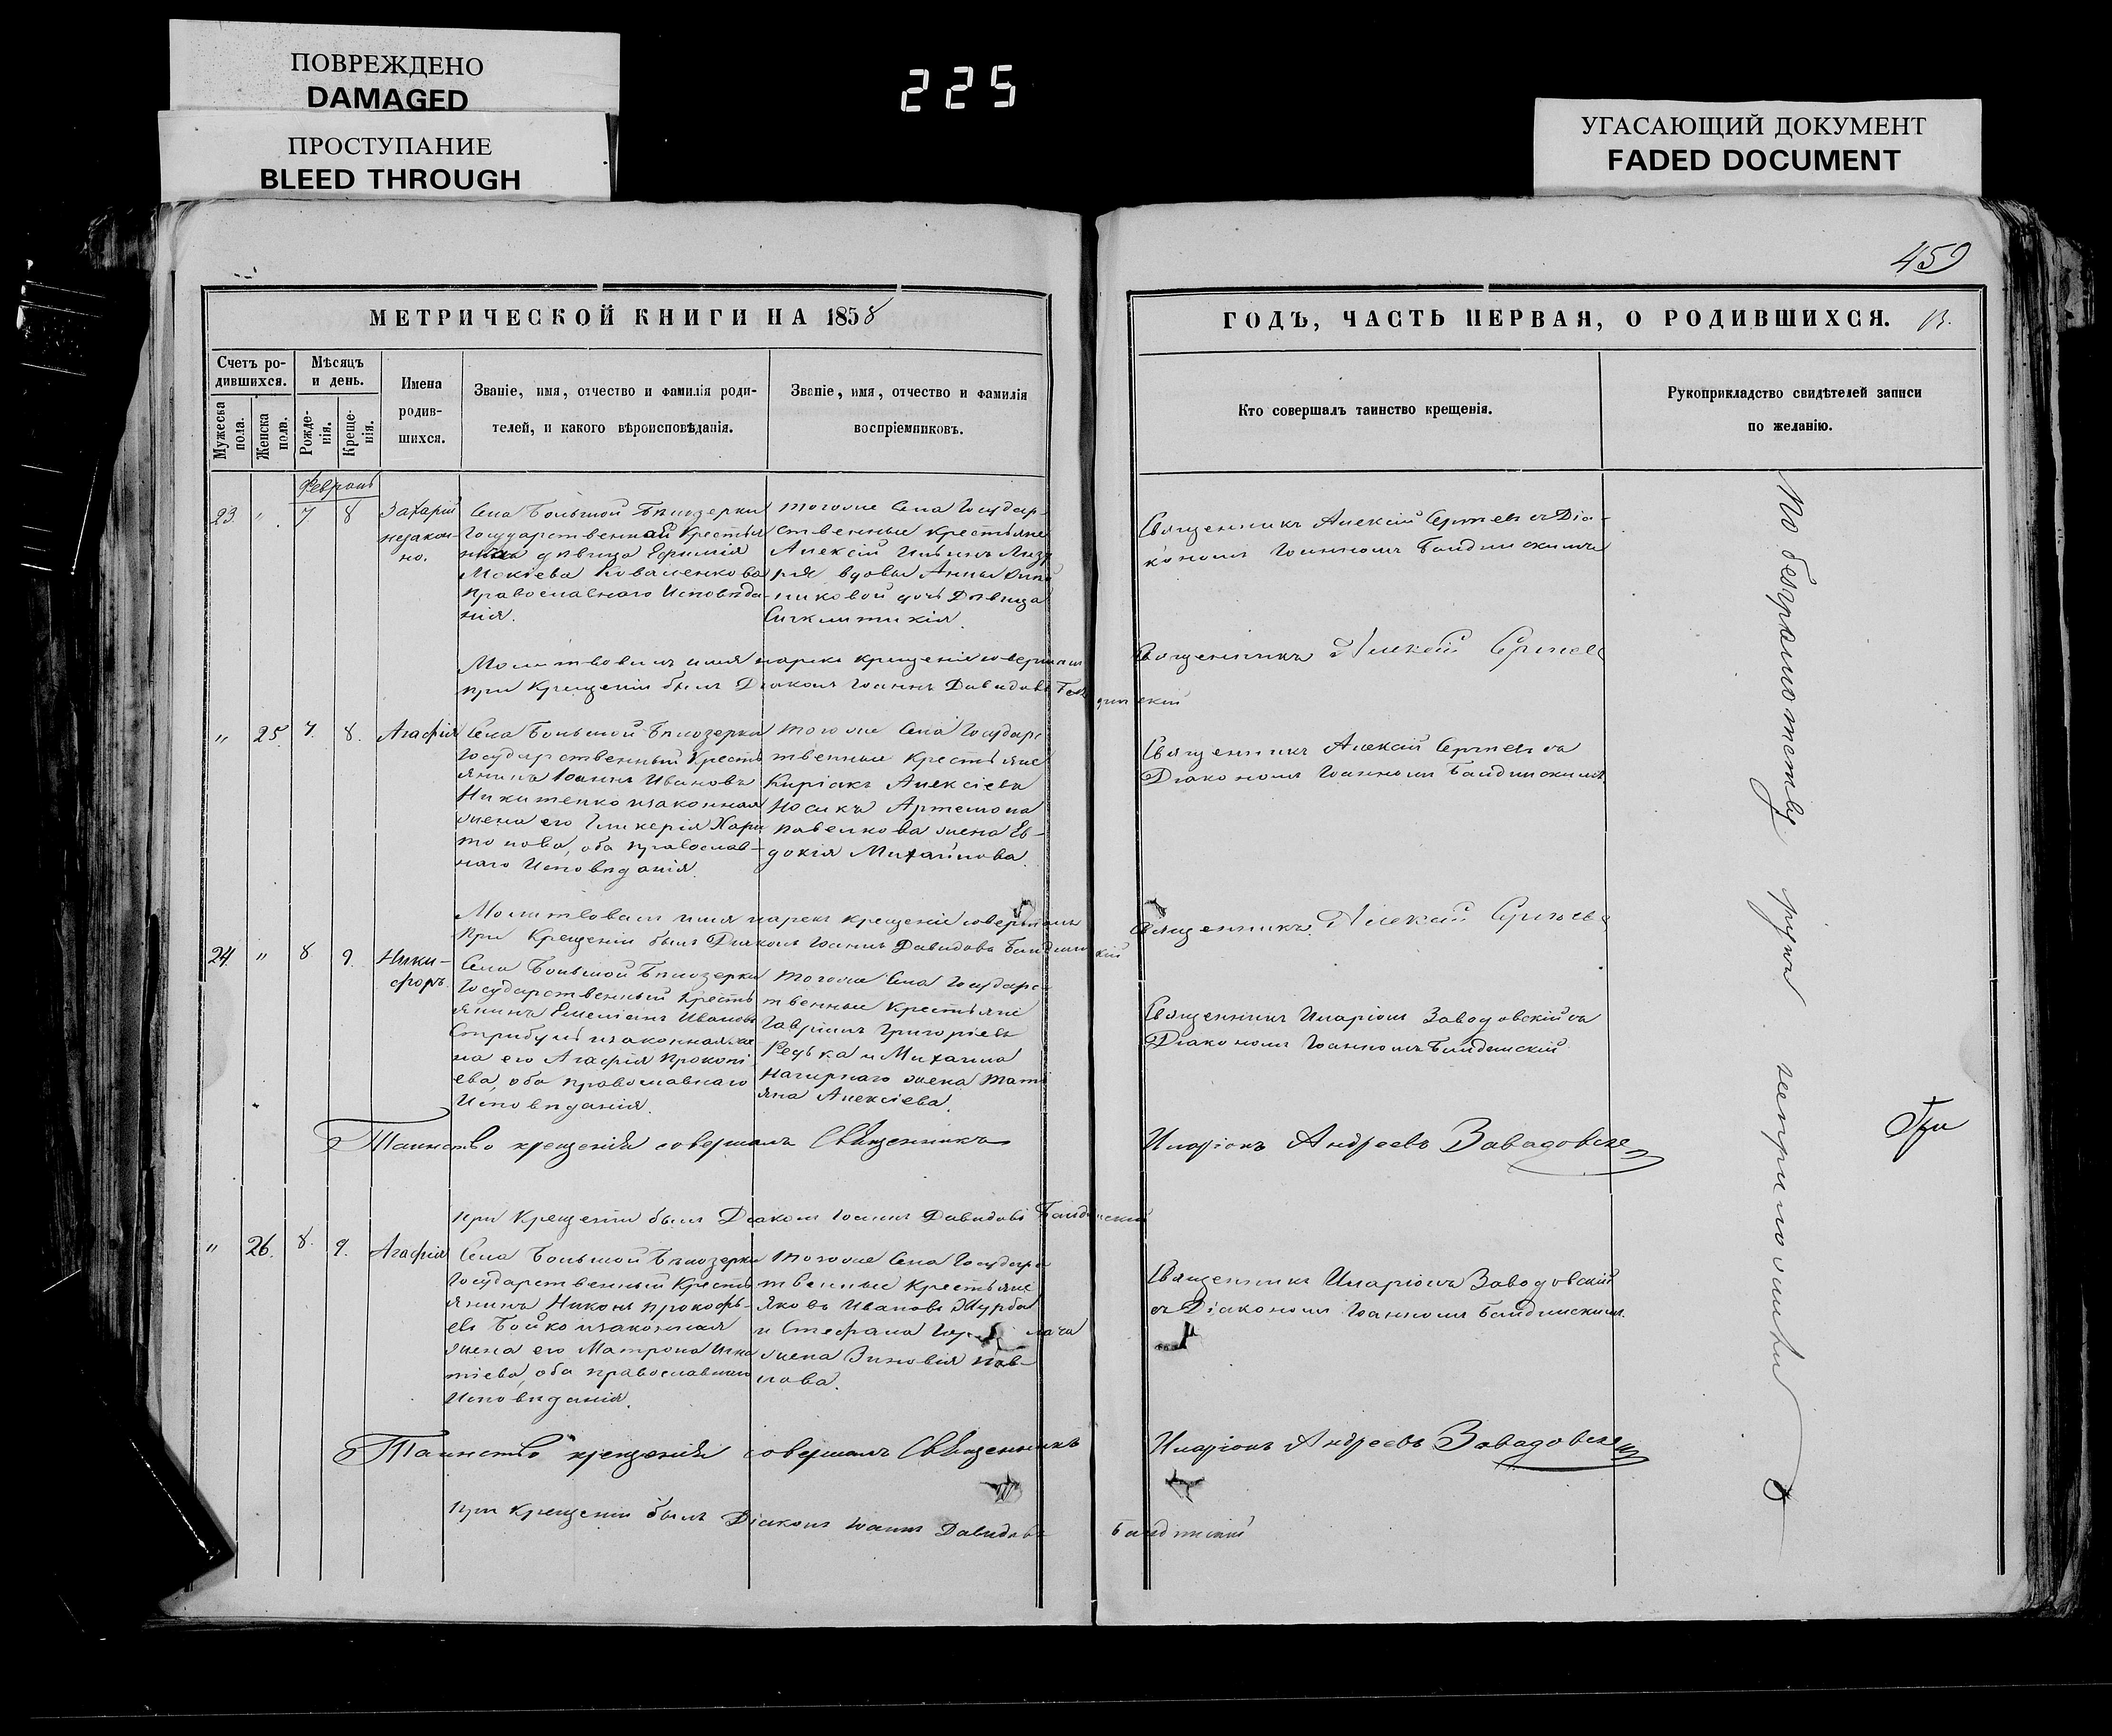 ПОВРЕЖДЕНО
DAMAGED
ПРОСТУПАНИЕ
BLEED THROUGH
225
УГАСАЮЩИЙ ДОКУМЕНТ
FADED DOCUMENT
459
МЕТРИЧЕСКОЙ КНИГИ НА 1858
ГОДЪ, ЧАСТЬ ПЕРВАЯ, О РОДИВШИХСЯ.
Счетъ ро-
дившихся.
Мужеска
пола.
Женска
пола.
Мѣсяцъ
и день.
Рожде-
нія.
Креще-
нія.
Имена
родив-
шихся.
Званіе, имя, отчество и фамилія роди-
телей, и какого вѣроисповѣданія.
Званіе, имя, отчество и фамилія
воспріемниковъ.
Кто совершалъ таинство крещенія.
Рукоприкладство свидѣтелей записи
по желанію.
Февраль
23. " 7 8
Захарій
незакон-
но.
Села Большой Бѣлозерки
Государственной Крестья
дѣвица Ефимія
Мокіева Коваленкова
православнаго Исповѣда-
нія.
Тогоже Села Государ-
ственные Крестьяне
Алексій Ильинъ
вдовы Анны
дочь Дѣвица
Синклитикія.
Священникъ Алексій Сергѣевъ съ Діа-
кономъ Іоанномъ Балдинскимъ
Молитвовалъ имя нарекъ крещеніе совершилъ
Священникъ Алексій Сергѣевъ
При Крещеніи былъ Діаконъ Іоаннъ Давидовъ Балдинскій
" 25. 7. 8.
Агафія
Села Большой Бѣлозерки
Государственный Кресть
янинъ Іоаннъ Ивановъ
Никитенко и законная
жена его Гликерія Хари
тонова, оба православ-
наго Исповѣданія.
Тогоже Села Государс
твенные Крестьяне
Киріакъ Алексіевъ
Носикъ Артемона
Павелкова жена Ев-
докія Михайлова.
Священникъ Алексій Сергѣевъ съ
Діакономъ Іоанномъ Балдинскимъ
Молитвовалъ имя нарекъ крещеніе совершилъ
Священникъ Алексій Сергѣевъ
При Крещеніи былъ Діаконъ Іоаннъ Давидовъ Балдинскій
24. " 8 9.
Ники-
форъ
Села Большой Бѣлозерки
Государственный Кресть
янинъ Емеліанъ Ивановъ
Стрибуль и законная же
на его Агафія Прокопі
ева, оба православнаго
Исповѣданія.
Тогоже Села Государс-
твенные Крестьяне
Гавріилъ Григоріевъ
Редька и Михаила
Нагирнаго жена Тати
яна Алексіева.
Священникъ Иларіонъ Заводовскій съ
Діакономъ Іоанномъ Балдинскій
Таинство крещенія совершалъ Священникъ
Иларіонъ Андреевъ Завадовскій
При Крещеніи былъ Діаконъ Іоаннъ Давидовъ Балдинскій
" 26. 8. 9.
Агафія
Села Большой Бѣлозерки
Государственный Кресть
янинъ Никонъ Прокофь-
евъ Бойко и законная
жена его Матрона Игна
тіева, оба православнаго
Исповѣданія.
Тогоже Села Государс
твенные Крестьяне
Яковъ Ивановъ Журба
и Стефана
жена Зиновія Пав-
лова.
Священникъ Иларіонъ Заводовскій
съ Діакономъ Іоанномъ Балдинскимъ
Таинство крещенія совершалъ Священникъ
Иларіонъ Андреевъ Завадовскій
При Крещеніи былъ Діаконъ Іоаннъ Давидовъ Балдинскій
По безграмотству рукъ неприложили